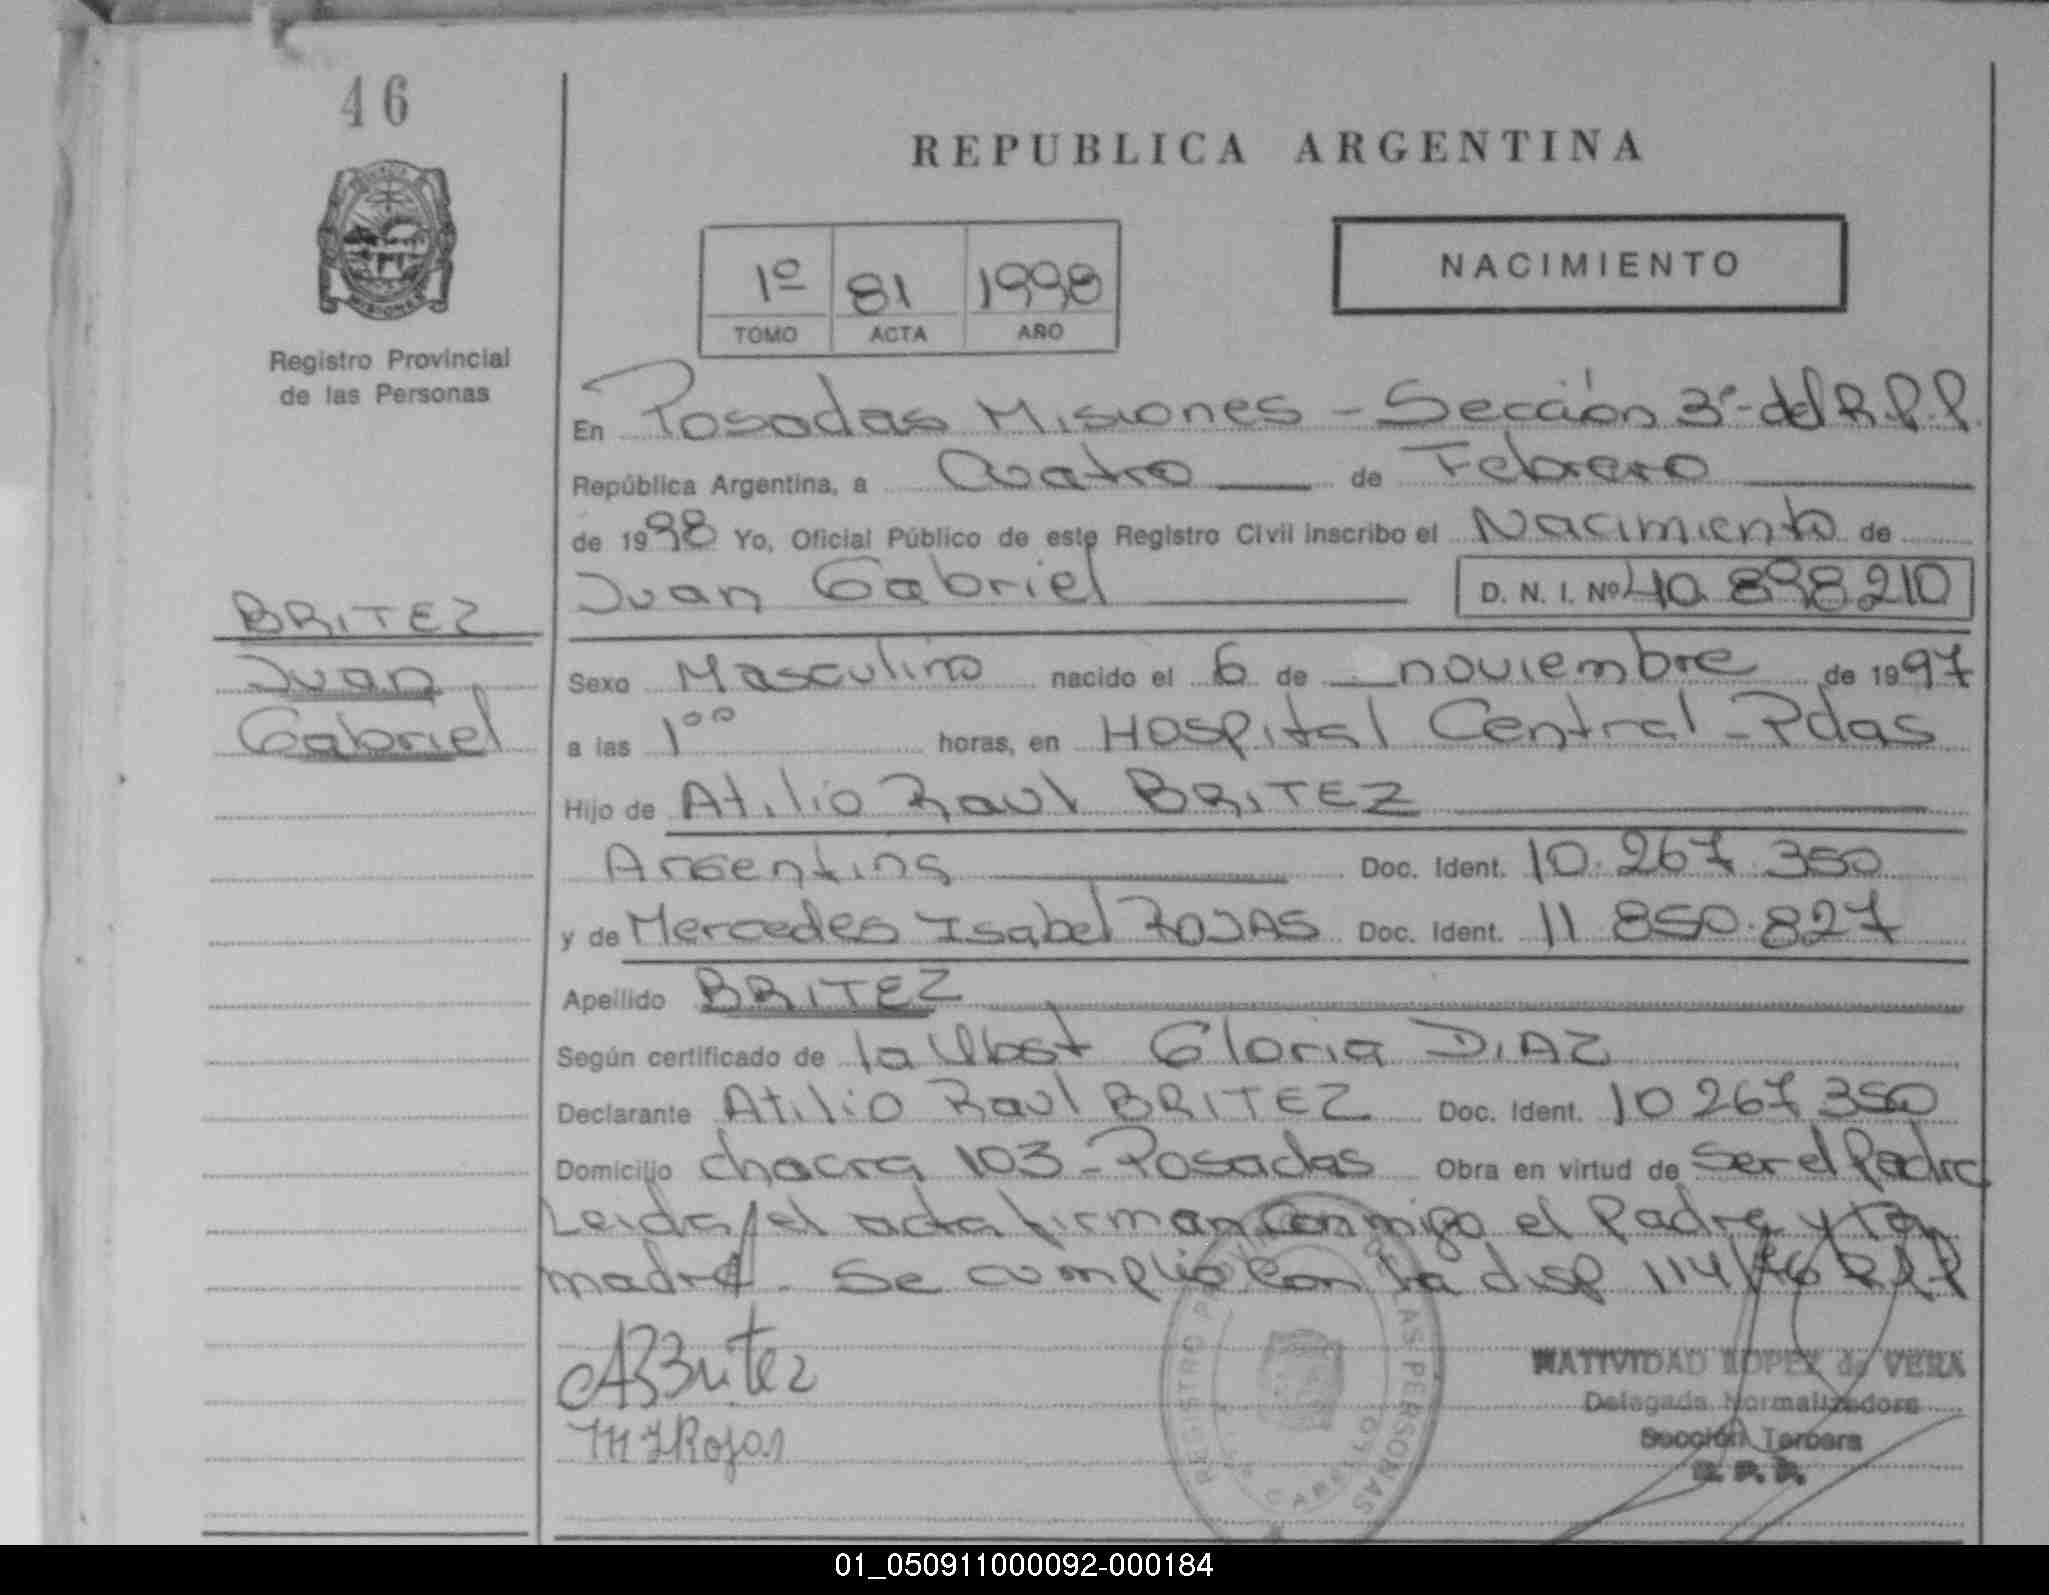 46
REPUBLICA ARGENTINA
1º 81 1998
TOMO ACTA AÑO
NACIMIENTO
MISIONES
Registro Provincial
de las Personas
En Posadas Misiones - Sección 3º - del R.P.P.
República Argentina, a Cuatro de Febrero
de 1998 Yo, Oficial Público de este Registro Civil inscribo el Nacimiento de
Juan Gabriel D. N. I. Nº 40.898210
BRITEZ
Juan
Gabriel
Sexo Masculino nacido el 6 de noviembre de 1997
a las 1ºº horas, en Hospital Central - Pdas
Hijo de Atilio Raul BRITEZ
Argentina Doc. Ident. 10.267.350
y de Mercedes Isabel ROJAS Doc. Ident. 11.850.827
Apellido BRITEZ
Según certificado de la Obst Gloria DIAZ
Declarante Atilio Raul BRITEZ Doc. Ident. 10267350
Domicilio chacra 103 - Posadas Obra en virtud de ser el Padre
Leida el acta firman conmigo el Padre y la
madre. Se cumplio con la disp 114/96 R.P.P
ABritez
MIRojas
REGISTRO PROVINCIAL DE LAS PERSONAS
NATIVIDAD LOPEZ de VERA
Delegada Normalizadora
Sección Tercera
R. P. P.
01_050911000092-000184